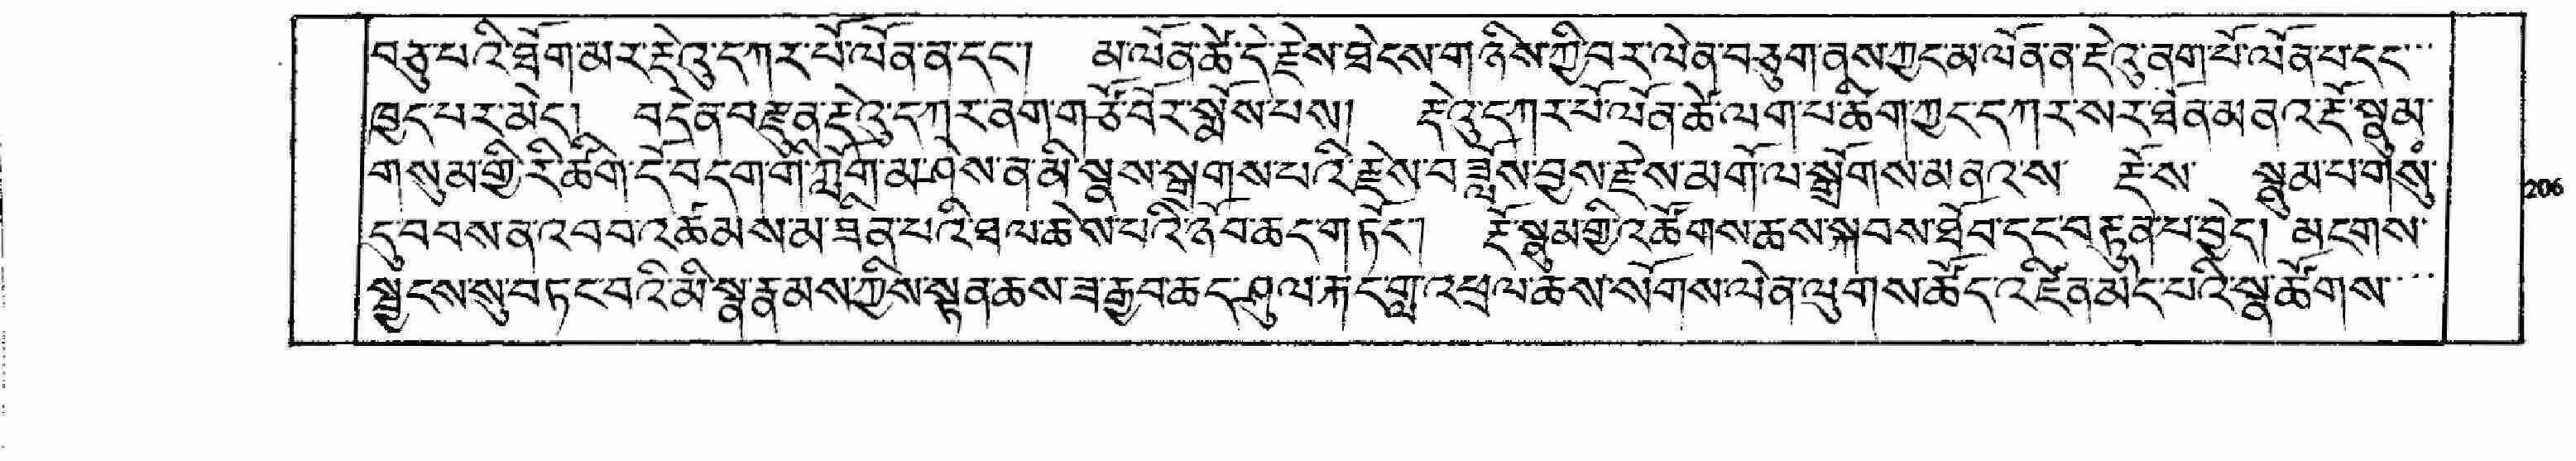 བཅུ་པའི་ཐོག་མར་རྡེའུ་དཀར་པོ་ལོན་ན་དང་།  མ་ལོན་ཚེ་དེ་རྗེས་ཐེངས་གཉིས་ཀྱི་བར་ལེན་བཅུག་ནས་ཀྱང་མ་ལོན་ན་རྡེའུ་ནག་པོ་ལོན་པ་དང་
ཁྱད་པར་མེད།  བདེན་བརྫུན་རྡེའུ་དཀར་ནག་གཙོ་བོར་སྨོས་པས།  རྡེའུ་དཀར་པོ་ལོན་ཚེ་ལག་པ་ཚིག་ཀྱང་དཀར་སར་ཐོན་མནའ་རྡོ་སྣུམ་
གསུམ་གྱི་རི་ཚིག་དེ་བདག་གི་ཀློག་མ་ཤེས་ན་མི་སྣས་སྒྲགས་པའི་རྗེས་བཟློས་བྱས་རྗེས་མགོ་ལ་སྒྲོགས་མནའ་ས་ རྡོ་ས་ སྣུམ་པ་གསུཾ་
དུ་བབས་ན་འབབ་འཚམས་མ་ཟིན་པའི་ཐལ་ཆེས་པའི་ཉོབ་ཆད་གཏོང་།  རྡོ་སྣུམ་གྱི་འཚོགས་ཆས་སྐབས་ཐོབ་དང་བརྟུན་པ་བྱེད། མངགས་
སྦྱངས་སུ་བཏང་བའི་མི་སྣ་རྣམས་ཀྱིས་སྟན་ཆས་ཟ་རྒྱབ་ཆད་ཤུལ་རྐང་གླ་འཕྲལ་ཆས་སོགས་ལེན་ཕྱུགས་ཚོད་འཛིན་མེད་པའི་སྣ་ཚོགས་
206